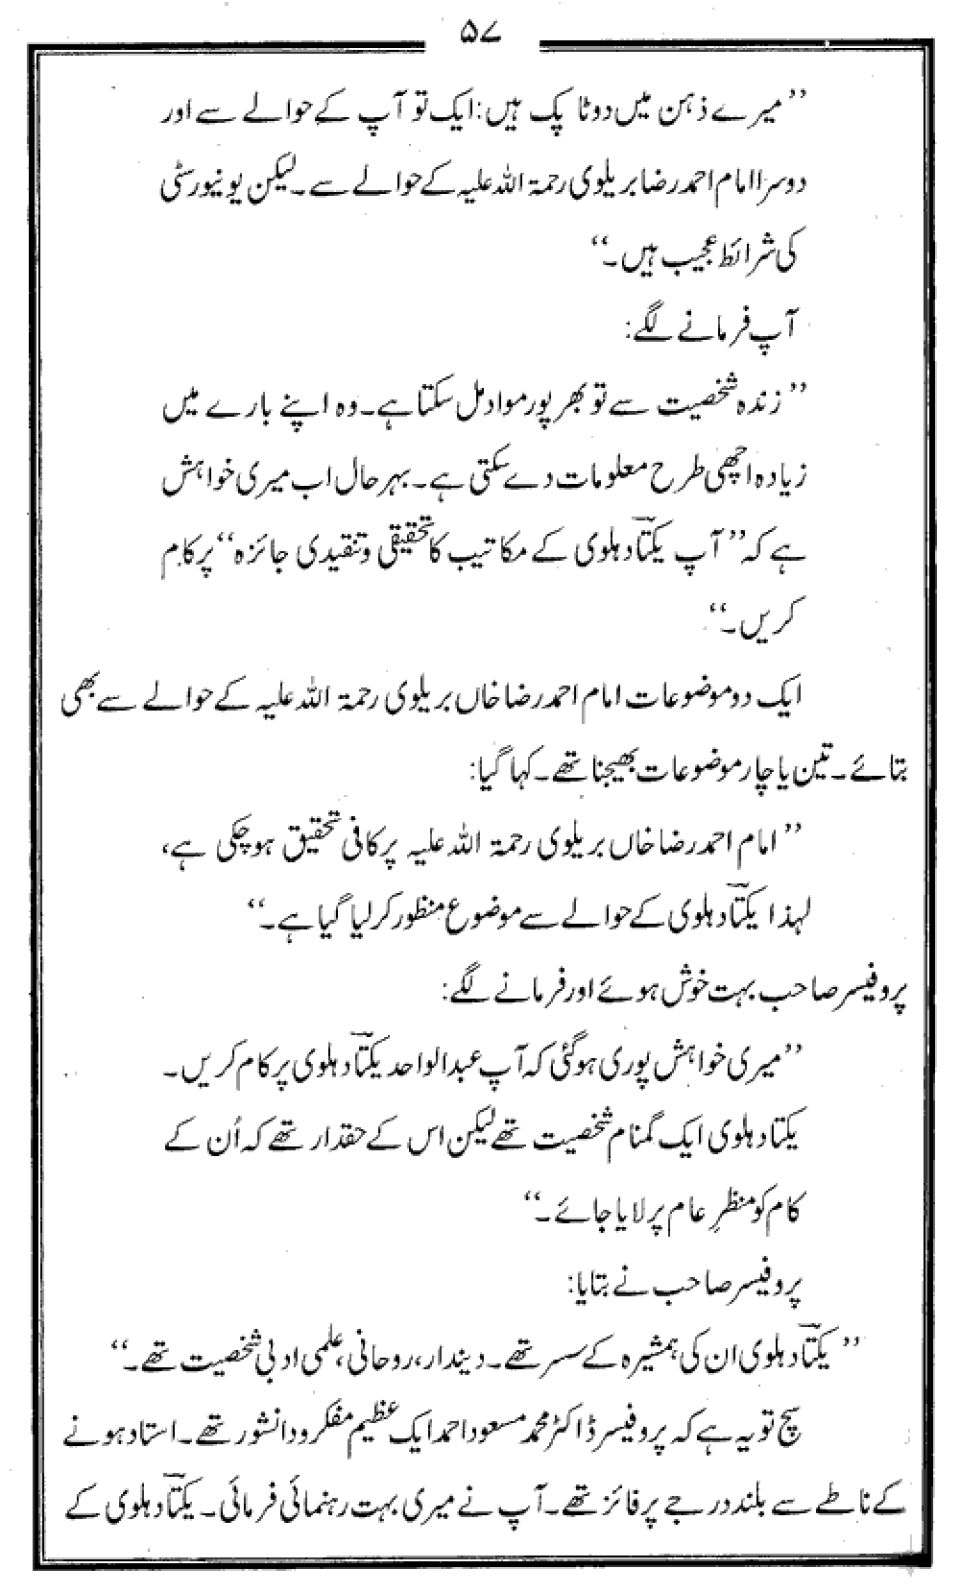 ۵۷
’’میرے ذہن میں دو ٹاپک ہیں: ایک تو آپ کے حوالے سے اور
دوسرا امام احمد رضا بریلوی رحمۃ اللہ علیہ کے حوالے سے۔ لیکن یونیورسٹی
کی شرائط عجیب ہیں۔‘‘
آپ فرمانے لگے:
’’زندہ شخصیت سے تو بھرپور مواد مل سکتا ہے۔ وہ اپنے بارے میں
زیادہ اچھی طرح معلومات دے سکتی ہے۔ بہرحال اب میری خواہش
ہے کہ ’’آپ یکتاؔ دہلوی کے مکاتیب کا تحقیقی و تنقیدی جائزہ‘‘ پر کام
کریں۔‘‘
ایک دو موضوعات امام احمد رضا خاں بریلوی رحمۃ اللہ علیہ کے حوالے سے بھی
بتائے۔ تین یا چار موضوعات بھیجنا تھے۔ کہا گیا:
’’امام احمد رضا خاں بریلوی رحمۃ اللہ علیہ پر کافی تحقیق ہوچکی ہے،
لہذا یکتاؔ دہلوی کے حوالے سے موضوع منظور کرلیا گیا ہے۔‘‘
پروفیسر صاحب بہت خوش ہوئے اور فرمانے لگے:
’’میری خواہش پوری ہوگئی کہ آپ عبدالواحد یکتاؔ دہلوی پر کام کریں۔
یکتا دہلوی ایک گمنام شخصیت تھے لیکن اس کے حقدار تھے کہ اُن کے
کام کو منظرِ عام پر لایا جائے۔‘‘
پروفیسر صاحب نے بتایا:
’’یکتاؔ دہلوی ان کی ہمشیرہ کے سسر تھے۔ دیندار، روحانی، علمی ادبی شخصیت تھے۔‘‘
سچ تو یہ ہے کہ پروفیسر ڈاکٹر محمد مسعود احمد ایک عظیم مفکر و دانشور تھے۔ استاد ہونے
کے ناطے سے بلند درجے پر فائز تھے۔ آپ نے میری بہت رہنمائی فرمائی۔ یکتاؔ دہلوی کے